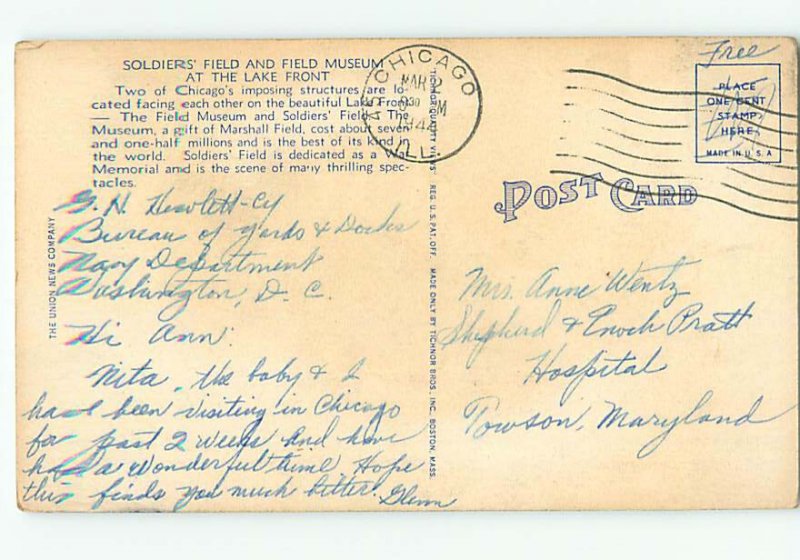 SOLDIERS' FIELD AND FIELD MUSEUM
AT THE LAKE FRONT
Two of Chicago's imposing structures are lo-
cated facing each other on the beautiful Lake Front
— The Field Museum and Soldiers' Field. The
Museum, a gift of Marshall Field, cost about seven
and one-half millions and is the best of its kind in
the world. Soldiers' Field is dedicated as a War
Memorial and is the scene of many thrilling spec-
tacles.
G. N. Hewlett-Cy
Bureau of Yards & Docks
Navy Department
Washington, D. C.
Hi Ann:
Nita, the baby & I
have been visiting in Chicago
for past 2 weeks and have
had a wonderful time. Hope
this finds you much better. Glenn
THE UNION NEWS COMPANY
TICHNOR QUALITY VIEWS REG. U. S. PAT. OFF. MADE ONLY BY TICHNOR BROS., INC. BOSTON, MASS.
CHICAGO
MAR 2
30 M
ILL.
Free
PLACE
ONE CENT
STAMP
HERE
MADE IN U. S. A
POST CARD
Mrs. Anne Wentz
Shepherd & Enoch Pratt
Hospital
Towson, Maryland